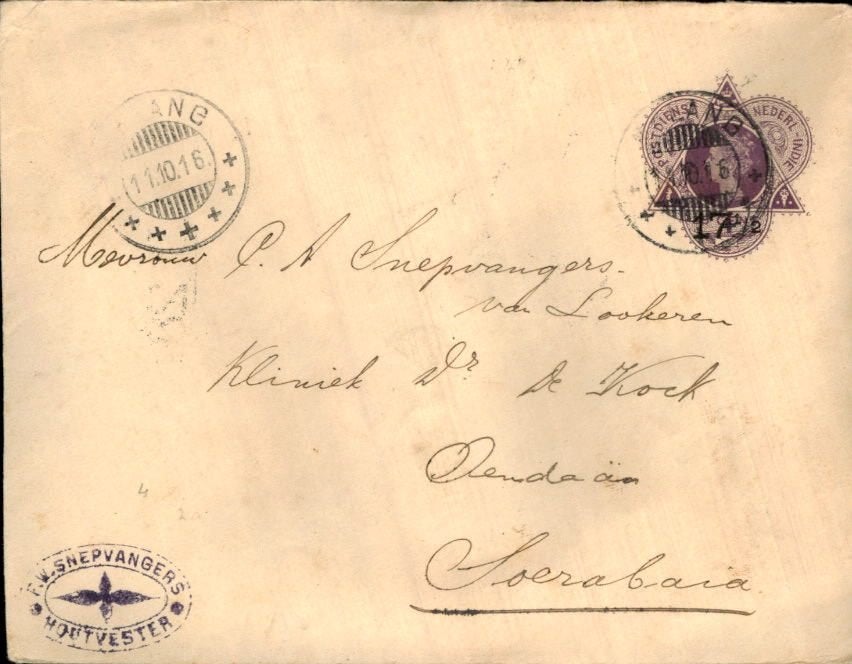 ANG
11.10.16.
ANG
10.16
POSTDIENST
NEDERL-INDIE
17 1/2
Mevrouw P. A Snepvangers.
van Lookeren
Kliniek Dr. De Kock
Oendaän
Soerabaia
4
2a
F.W. SNEPVANGERS
HOUTVESTER